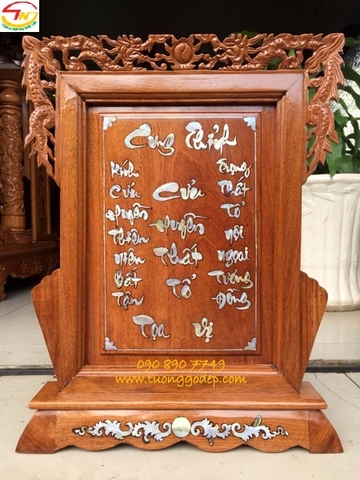 TN
Cung Thỉnh
Kính
Cửu
Huyền
Thiên
Niên
Bất
Tận
Cửu
Huyền
Thất
Tổ
Trọng
Thất
Tổ
Nội
Ngoại
Tương
Đồng
Tọa Vị
090 890 7749
www.tuonggodep.com